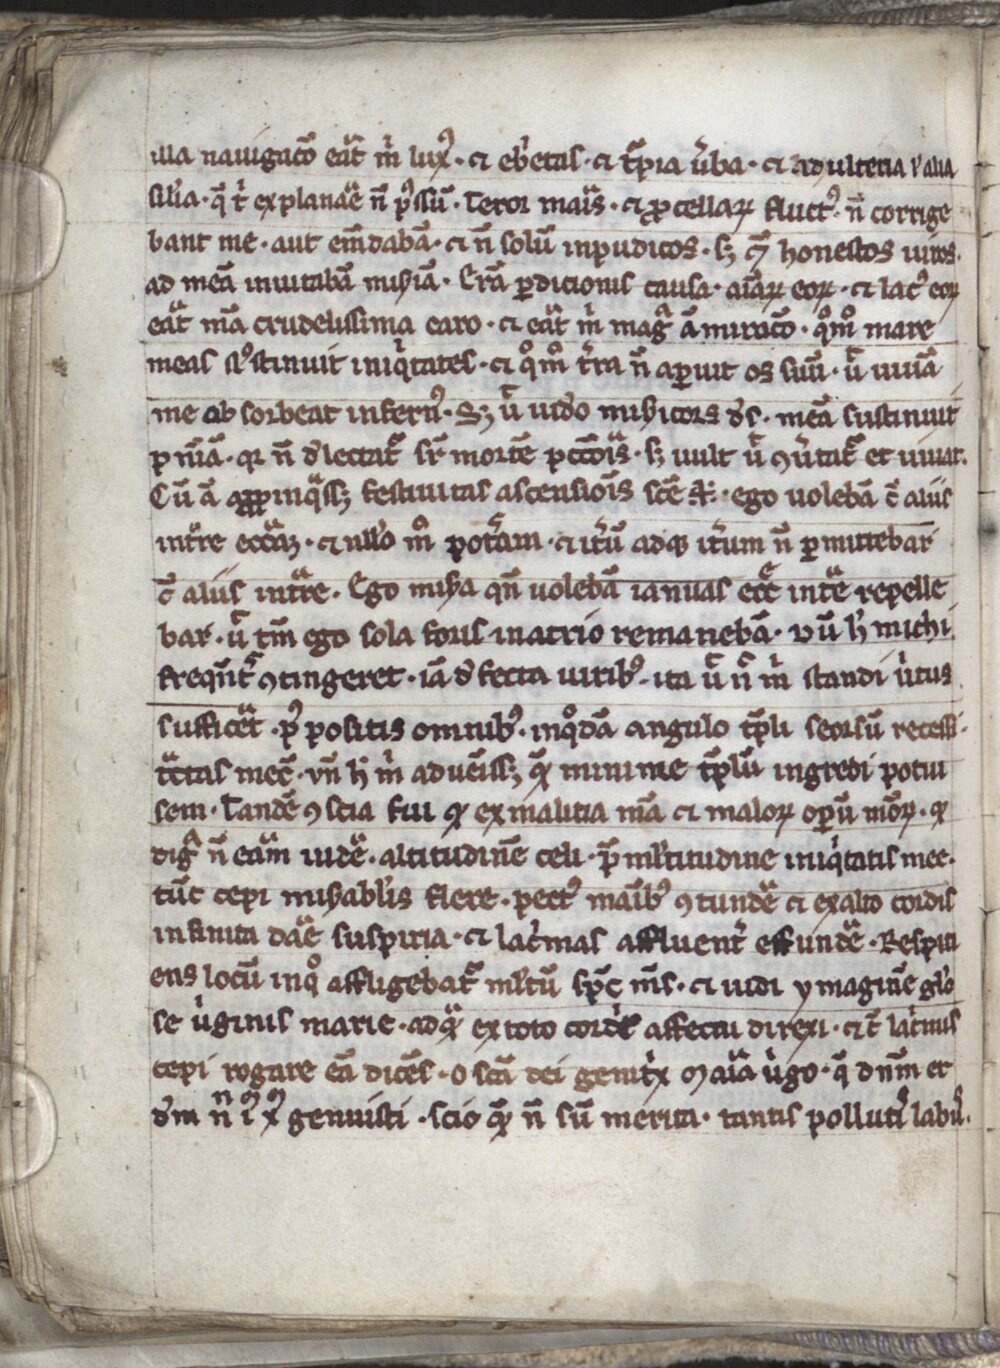 illa nauigacō eāt m̄ lux᷒ · ⁊ eb̄etas · ⁊ t̄pia ūba · ⁊ adulteria ł alia
sil̄ia · q̄ t̄ explanāe n̄ p᷒sū · Teror māis · ⁊ ꝓcellaꝝ fluct᷒ · n̄ corrige
bant me · aut em̄dabā · ⁊ n̄ solū inpudicos · sꝫ ⁊ honestos uiros ·
ad meā inuitabā mis̄iā · Erā ꝑdicionis causa · aīaꝝ eoꝝ · ⁊ lac᷒ eoꝝ
eāt m̄a crudelissima caro · ⁊ eāt m̄ maḡ āmiracō · qͦmͦ mare
meas s᷒stinuit iniq̄tates · ⁊ qͦmͦ t̄ra n̄ aꝑuit os suū · ū uiuā
me absorbeat infern᷒ · Sꝫ ū uid̄o mis̄icors d̄s · meā sustinuit
p nīā · qr n̄ d̄lectat̄ sr̄ mortē pccōis · sꝫ uult ū ꝯūtat̄ et uiuat ·
Cū ā appinq̄ssꝫ festiuitas ascensiōis scē ⁊ · ego uolebā c̄ aliis
int̄re ecc̄aꝫ · ⁊ nll̄o mͦ poterām · ⁊ it̄ū adqꝫ it̄um n̄ ꝑmittebar
c̄ aliis int̄re · Ego mis̄a qn̄ uolebā ianuas ecc̄e int̄e repelle
bar · ū tm̄ ego sola foris in atrio remanebā · Dū h̄ michi
freqn̄t̄ ꝯtingeret · iā d̄fecta uirib᷒ · ita ū n̄ m̄ standi ūtus
sufficēt · p᷒positis omnib᷒ · inqͦdā angulo t̄pli seorsū recessi ·
t̄ctas mec̄ · vn̄ h̄ m̄ aduēissꝫ ꝙ minime t̄plū ingredi potui
sem · Tandē ꝯscia fui ꝙ ex malitia m̄a ⁊ maloꝝ oꝑū mōꝝ · ꝙ
diḡ n̄ eām uidē · altitudinē celi · p̄ ml̄titudine iniq̄tatis mee ·
tūc cepi mis̄abl̄is flere · pect᷒ māib᷒ ꝯtundē ⁊ ex alto cordis
infinita dāe suspiria · ⁊ lac̄mas affluent̄ effundē · Respici
ens locū inqͦ affligebat̄ ml̄tū sp̄c m̄s · ⁊ uidi ymaginē glͦo
se ūginis marie · adq̄ ex toto corde affectu direxi · ⁊ c̄ lac̄mis
cepi rogare eā dicēs · o sc̄a dei genit̄x ⁊ māia ūgo · q̄ dnm̄ et
d̄m n̄ ı̄ x̄ genuisti · scio ꝙ n̄ sū merita · tantis pollut᷒ labii᷒ ·